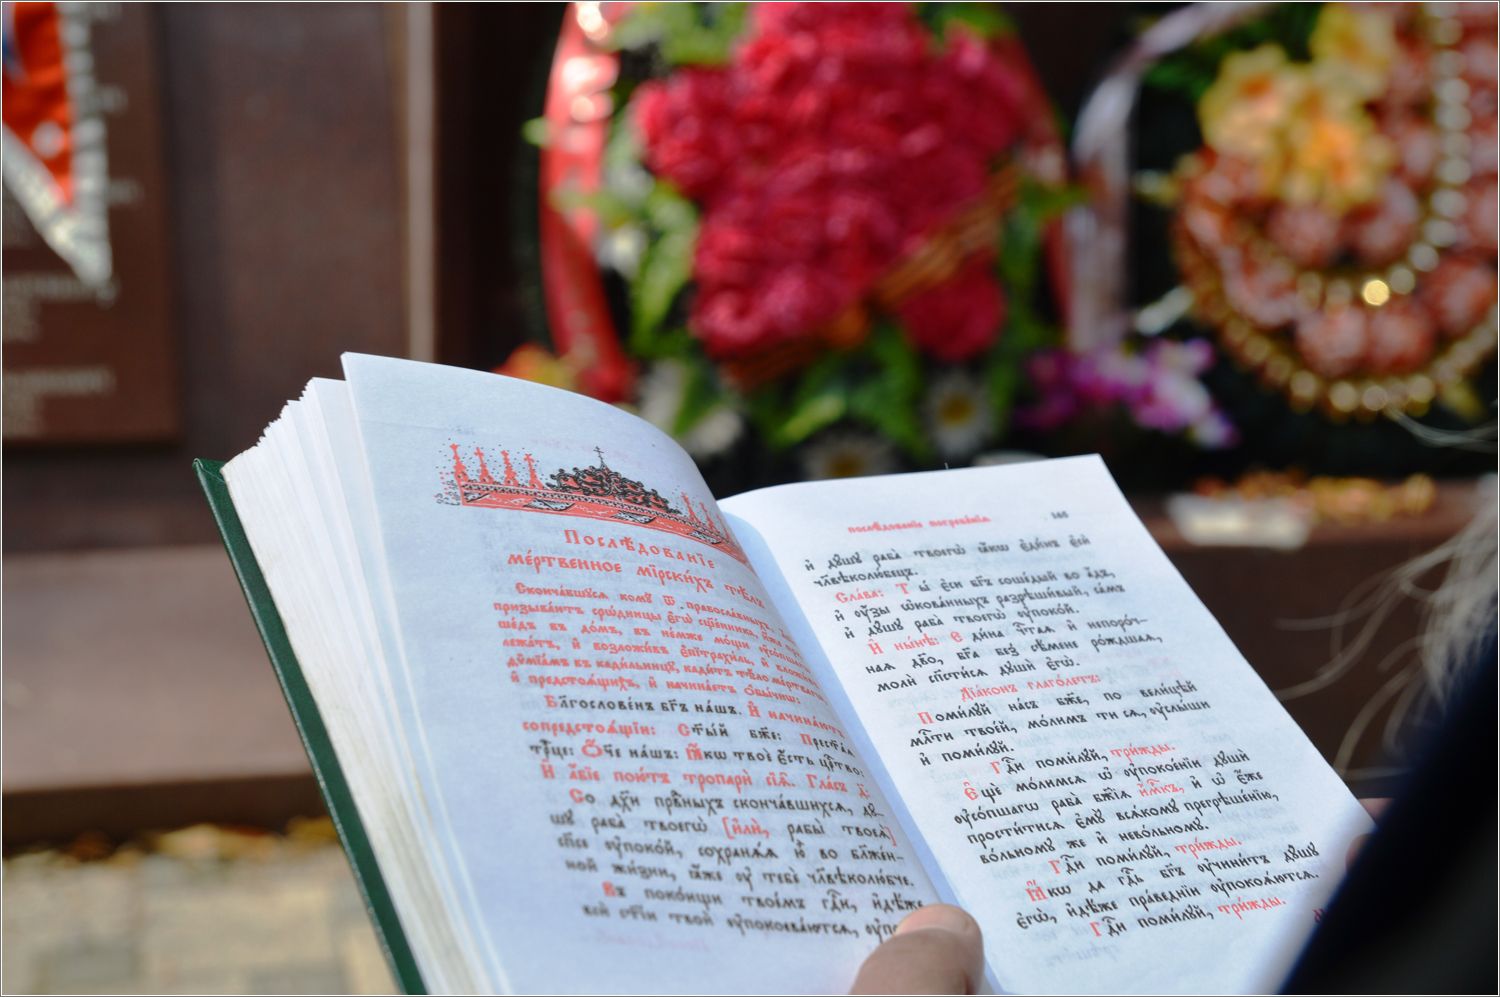 Послѣдованїе
ме́ртвенное мїрски́хъ тѣ́лъ
Скончавшꙋсѧ комꙋ̀ ѿ правосла́вныхъ,
призыва́ютъ срѡ́дницы є҆гѡ̀ сщ҃е́нника,
ше́дъ въ до́мъ, въ не́мже мо́щи ᲂу҆со́пшагѡ
лежа́тъ, и҆ возложи́въ є҆пїтрахи́ль, и҆
ѳѷмїа́мъ въ кади́льницꙋ, кади́тъ тѣ́ло ме́ртвагѡ
и҆ предстоѧ́щихъ, и҆ начина́етъ ѻ҆бы́чнѡ:
Благослове́нъ бг҃ъ на́шъ. И҆ начина́ютъ
сопредстоѧ́щїи: Ст҃ы́й бж҃е: Прест҃а́ѧ
трⷪ҇це: Ѻ҆́ч҃е на́шъ: Ꙗ҆́кѡ твоѐ є҆́сть црⷭ҇тво:
И҆ а҆́бїе пою́тъ тропарѝ сїѧ̑. Гла́съ д҃:
Со дꙋ́хи првⷣныхъ сконча́вшихсѧ, дꙋ́-
шꙋ раба̀ твоегѡ̀ [и҆лѝ, рабы̀ твоеѧ̀]
сп҃се ᲂу҆поко́й, сохранѧ́ѧ ю҆̀ во бл҃же́н-
ной жи́зни, ꙗ҆́же ᲂу҆ тебѐ чл҃вѣколю́бче.
Въ поко́ищи твое́мъ гдⷭ҇и, и҆дѣ́же
всѝ ст҃і́и твоѝ ᲂу҆покоева́ютсѧ,
послѣ́дованїе погребе́нїѧ
и҆ дꙋ́шꙋ раба̀ твоегѡ̀ ꙗ҆́кѡ є҆ди́нъ є҆сѝ
чл҃вѣколю́бецъ.
Сла́ва: Ты̀ є҆сѝ бг҃ъ соше́дый во а҆́дъ,
и҆ ᲂу҆́зы ѡ҆кова́нныхъ разрѣши́вый, са́мъ
и҆ дꙋ́шꙋ раба̀ твоегѡ̀ ᲂу҆поко́й.
И҆ ны́нѣ: Є҆ди́на чтⷭ҇аѧ и҆ непоро́ч-
наѧ дв҃о, бг҃а без̾ сѣ́мене ро́ждшаѧ,
молѝ сп҃сти́сѧ дꙋшѝ є҆гѡ̀.
Дїа́конъ глаго́летъ:
Поми́лꙋй на́съ бж҃е, по вели́цѣй
млⷭ҇ти твое́й, мо́лимъ ти сѧ, ᲂу҆слы́ши
и҆ поми́лꙋй.
Гдⷭ҇и поми́лꙋй, три́жды.
Є҆щѐ мо́лимсѧ ѡ҆ ᲂу҆покое́нїи дꙋшѝ
ᲂу҆со́пшагѡ раба̀ бж҃їѧ и҆́мⷬ҇къ, и҆ ѡ҆ є҆́же
прости́тисѧ є҆мꙋ̀ всѧ́комꙋ прегрѣше́нїю,
во́льномꙋ же и҆ нево́льномꙋ.
Гдⷭ҇и поми́лꙋй, три́жды.
Ꙗ҆́кѡ да гдⷭ҇ь бг҃ъ ᲂу҆чини́тъ дꙋ́шꙋ
є҆гѡ̀, и҆дѣ́же пра́веднїи ᲂу҆покоѧ́ютсѧ.
Гдⷭ҇и поми́лꙋй, три́жды.